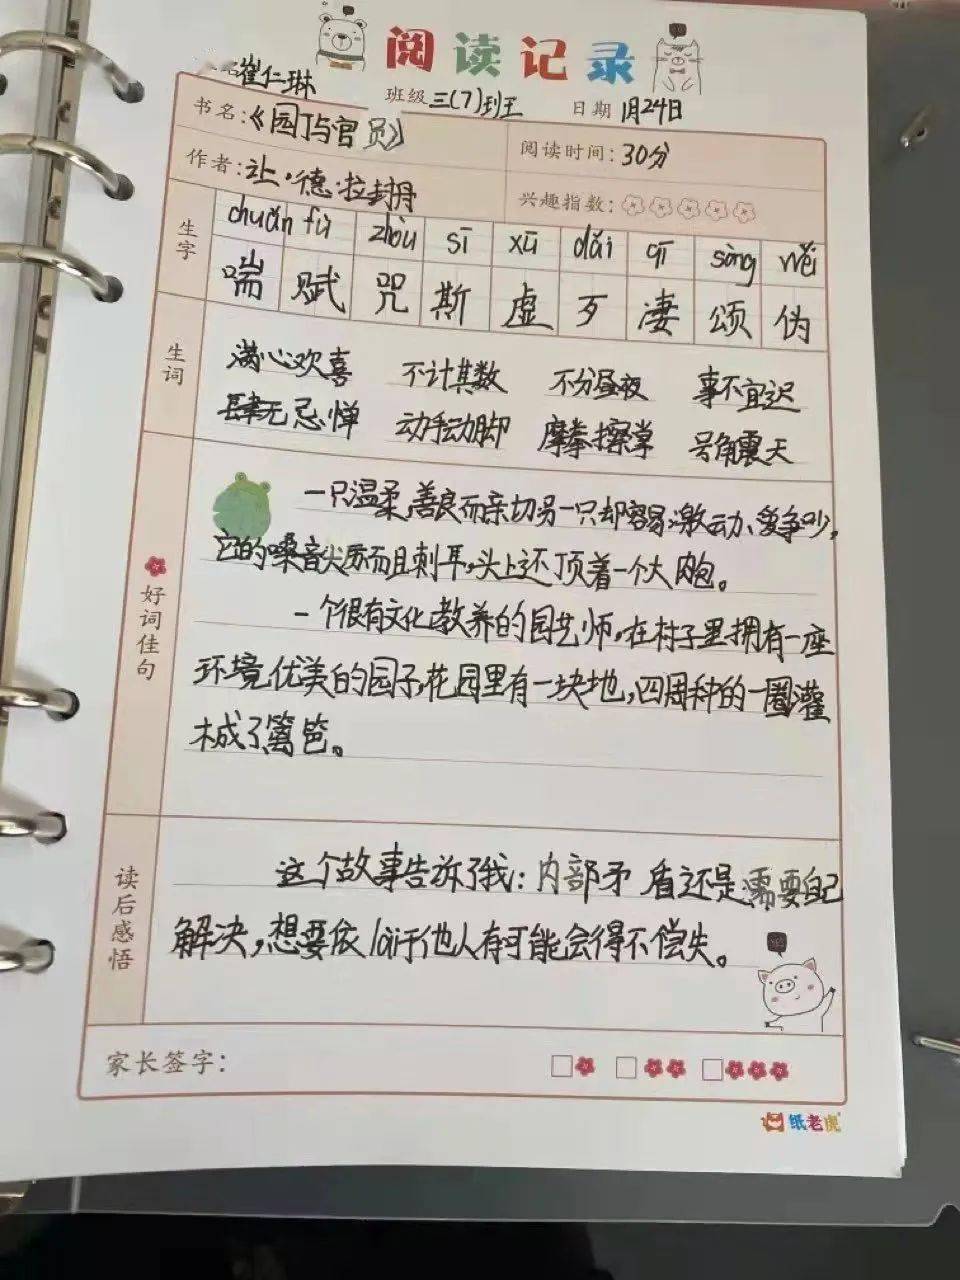 阅读记录
名 崔仁琳 班级 三(7)班 日期 1月24日
书名:《园丁与官员》 阅读时间:30分
作者:让·德·拉封丹 兴趣指数:
生字
chuǎn fù zhòu sī xū dǎi qī sòng wěi
喘 赋 咒 斯 虚 歹 凄 颂 伪
生词
满心欢喜 不计其数 不分昼夜 事不宜迟
肆无忌惮 动手动脚 摩拳擦掌 号角震天
好词佳句
一只温柔,善良而亲切另一只却容易激动、爱争吵,
它的嗓音尖厉而且刺耳,头上还顶着一个大肉包。
一个很有文化教养的园艺师,在村子里拥有一座
环境优美的园子,花园里有一块地,四周种的一圈灌
木成了篱笆。
读后感悟
这个故事告诉了我:内部矛盾还是需要自己
解决,想要依lài于他人有可能会得不偿失。
家长签字:
纸老虎